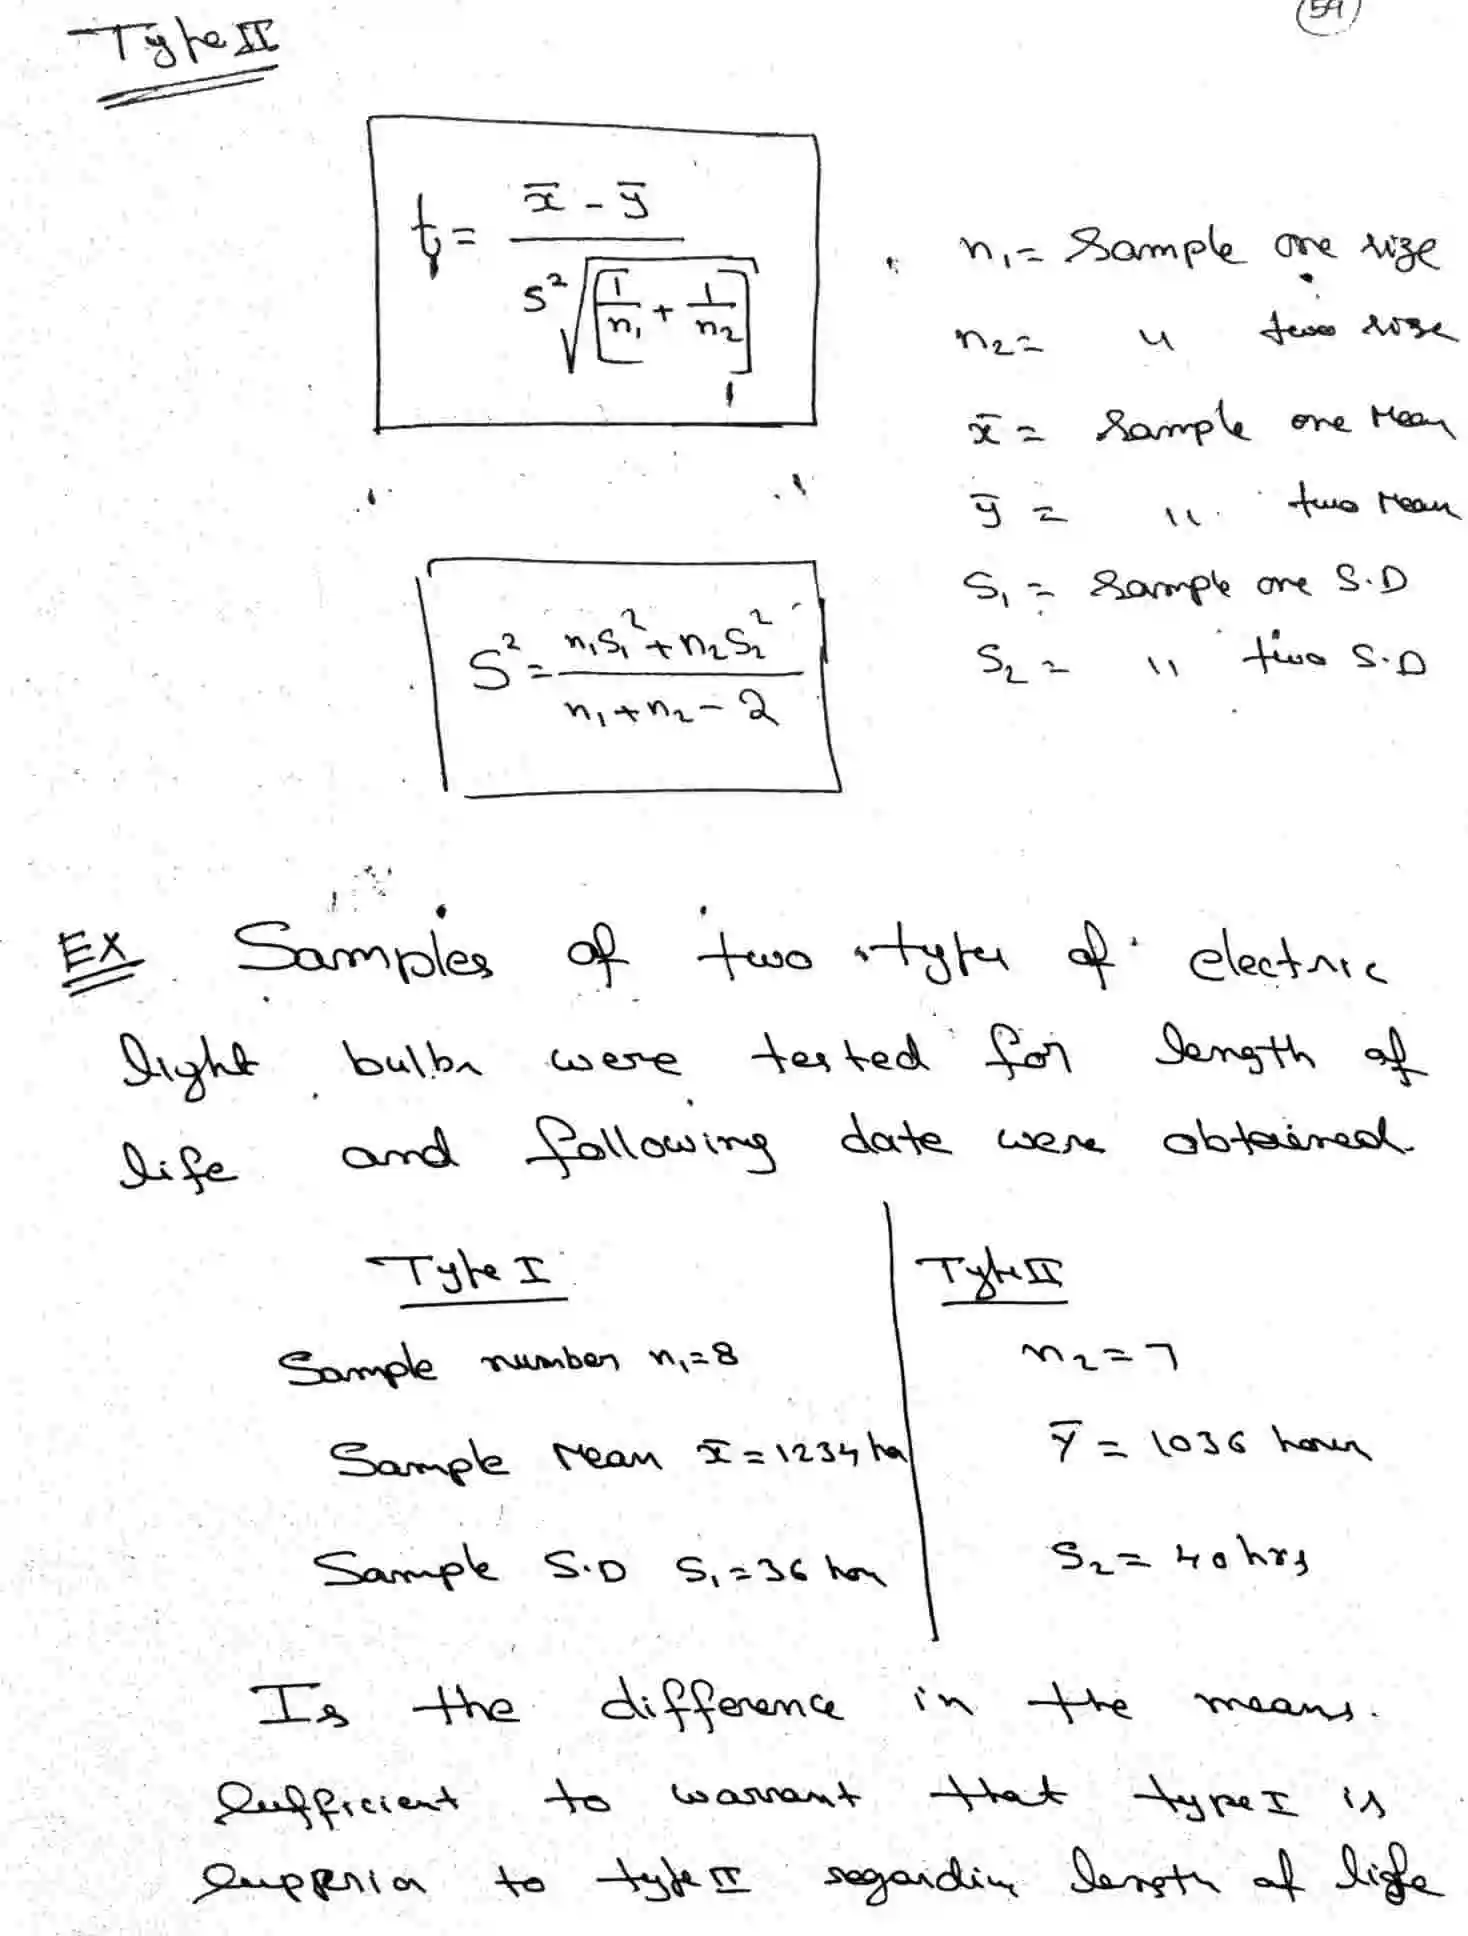 59
Type II
t = x̄ - ȳ / S² √[1/n₁ + 1/n₂]
n₁ = Sample one size
n₂ = " two size
x̄ = Sample one Mean
ȳ = " two Mean
S₁ = Sample one S.D
S₂ = " two S.D
S² = n₁S₁² + n₂S₂² / n₁ + n₂ - 2
EX Samples of two types of electric
light bulbs were tested for length of
life and following date were obtained.
Type I Type II
Sample number n₁ = 8 n₂ = 7
Sample Mean x̄ = 1234 hrs ȳ = 1036 hours
Sample S.D S₁ = 36 hrs S₂ = 40 hrs
Is the difference in the means.
Sufficient to warrant that type I is
to type II regarding length of life